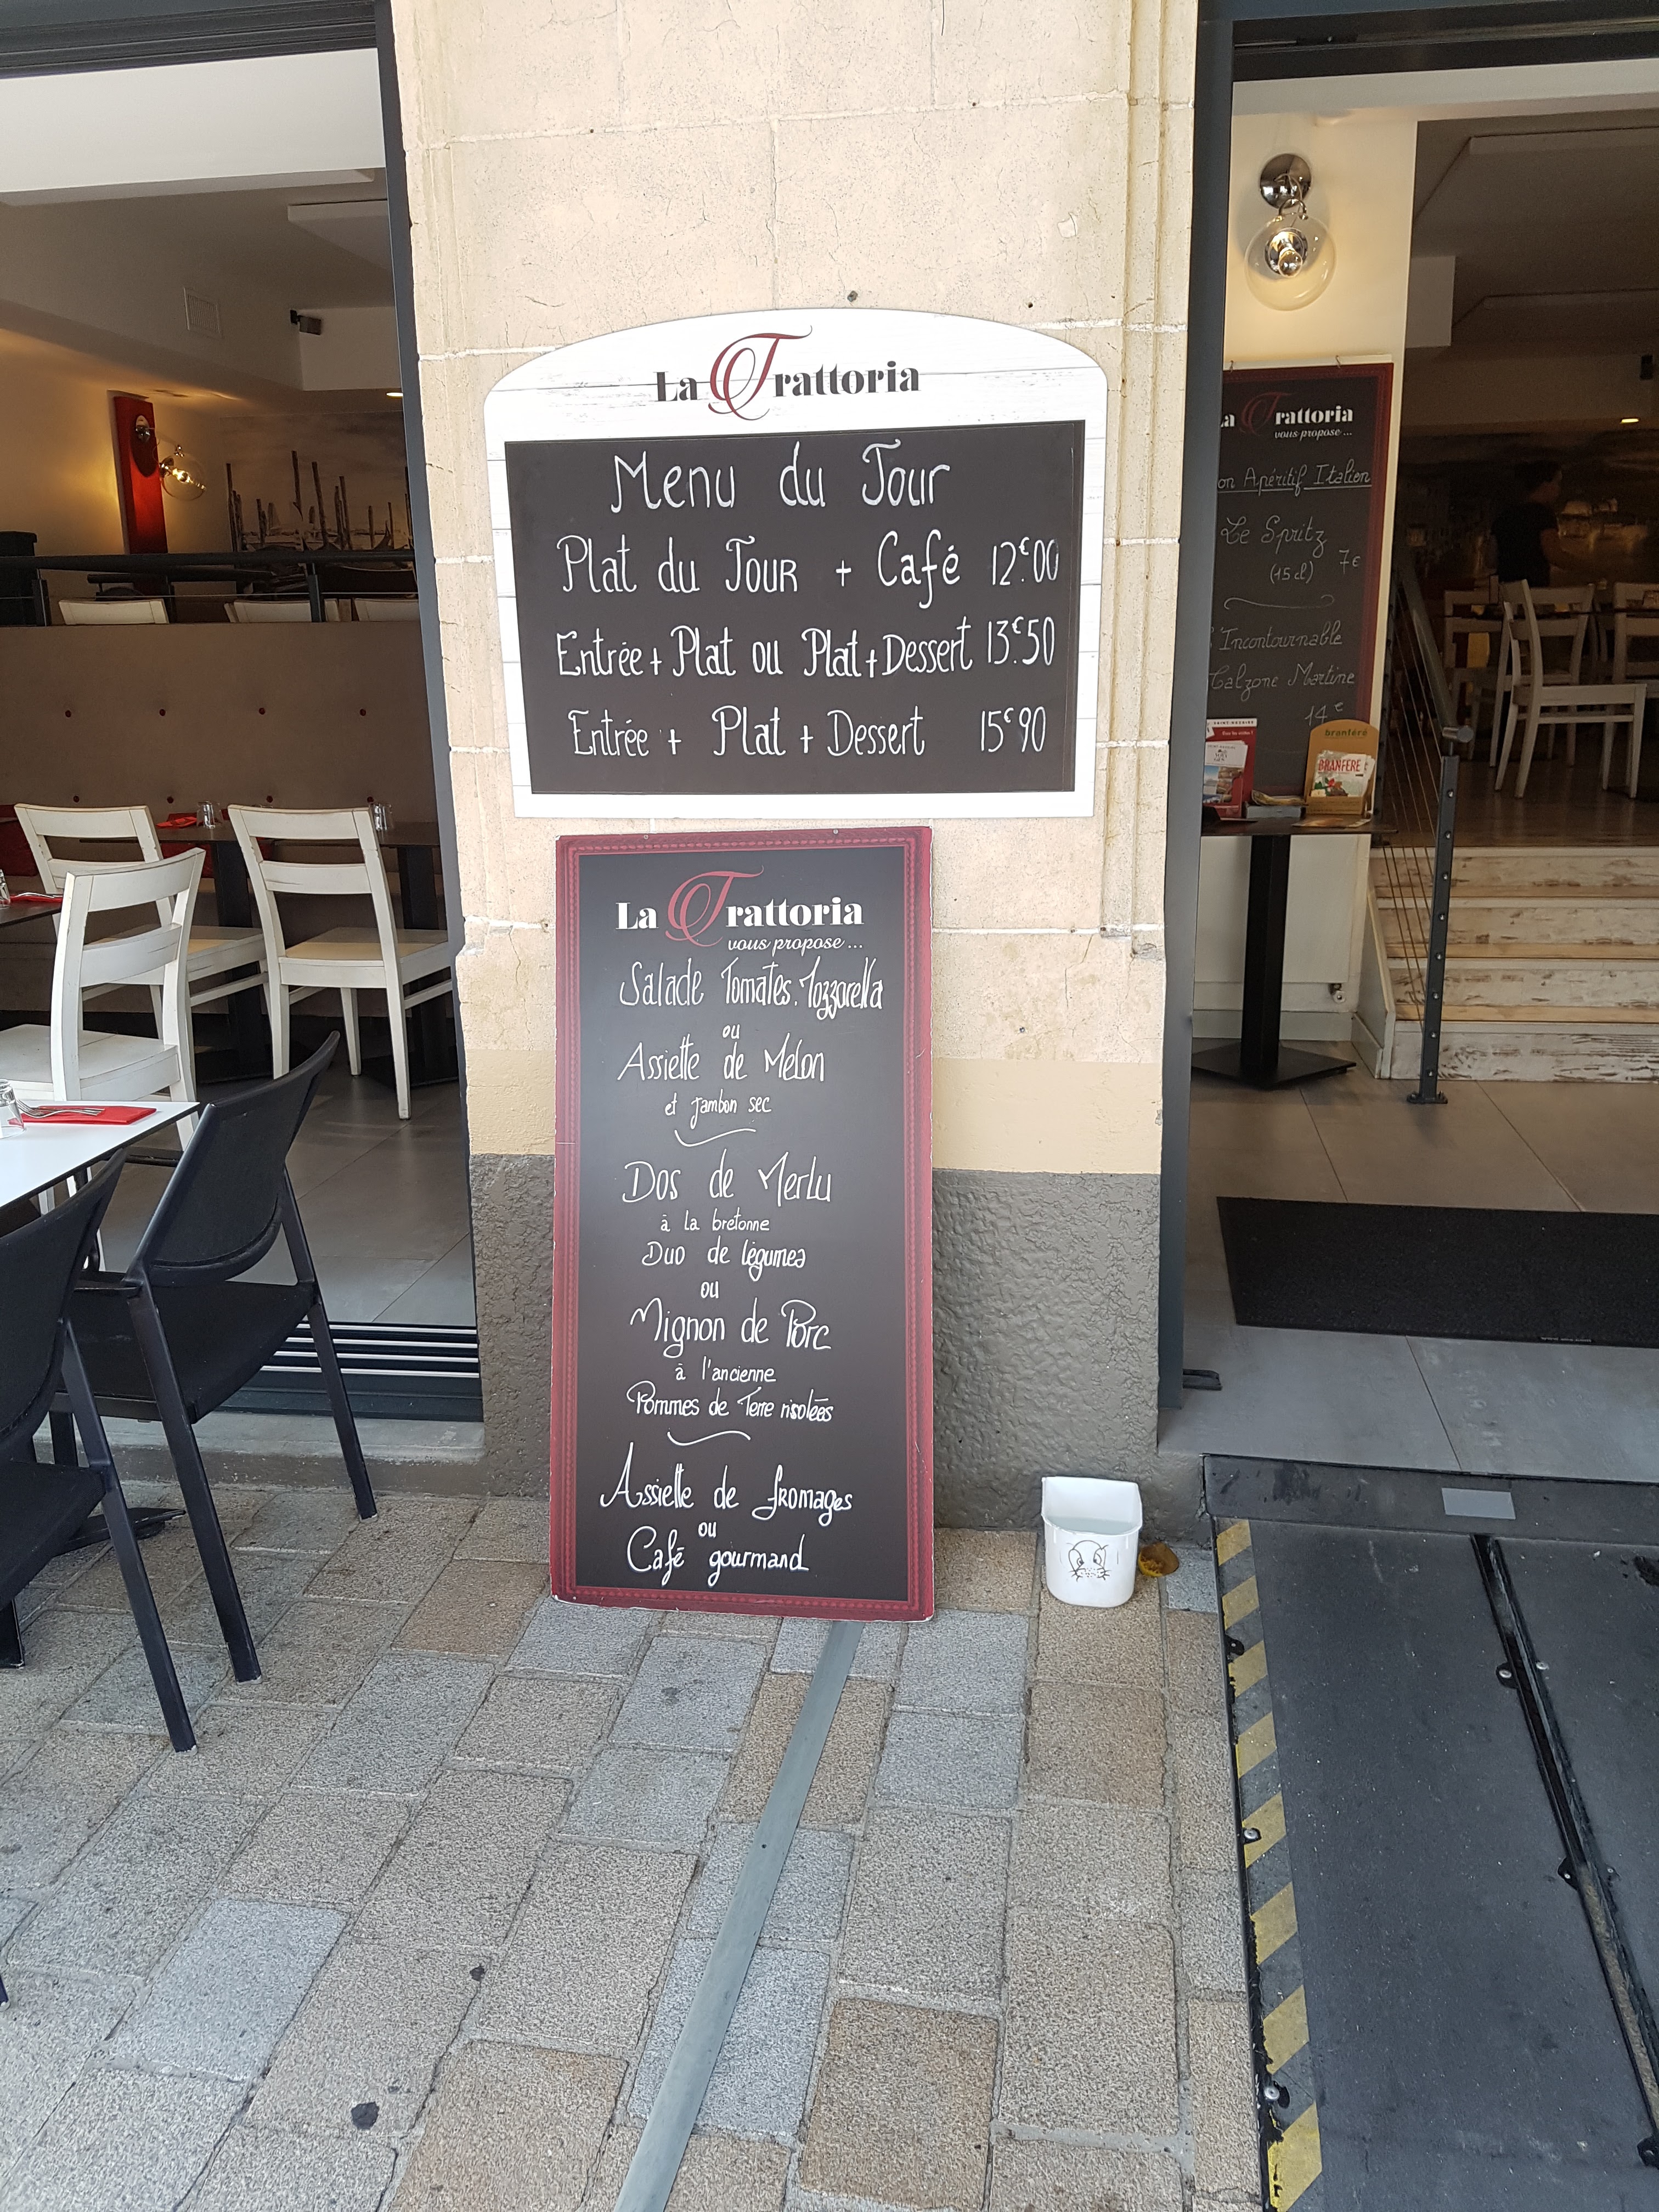 La Trattoria
Menu du Jour
Plat du Jour + Café 12€00
Entrée + Plat ou Plat + Dessert 13€50
Entrée + Plat + Dessert 15€90
La Trattoria
vous propose ...
Salade Tomates. Mozzarella
ou
Assiette de Melon
et jambon sec
Dos de Merlu
à la bretonne
Duo de légumes
ou
Mignon de Porc
à l'ancienne
Pommes de Terre risolées
Assiette de fromages
ou
Café gourmand
La Trattoria
vous propose ...
on Apéritif Italien
Le Spritz
(15 cl) 7€
Incontournable
Calzone Martine
14€
branféré
BRANFÉRÉ